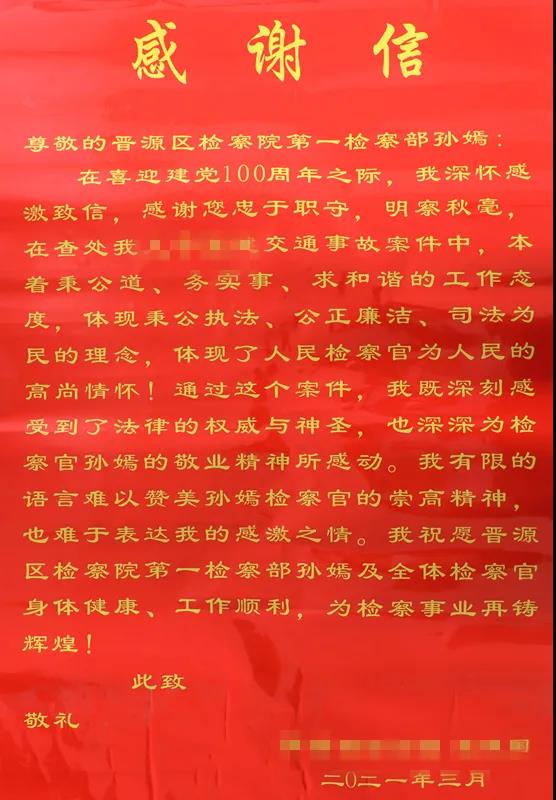 感谢信
尊敬的晋源区检察院第一检察部孙嫣：
在喜迎建党100周年之际，我深怀感
激致信，感谢您忠于职守，明察秋毫，
在查处我交通事故案件中，本
着秉公道、务实事、求和谐的工作态
度，体现秉公执法、公正廉洁、司法为
民的理念，体现了人民检察官为人民的
高尚情怀！通过这个案件，我既深刻感
受到了法律的权威与神圣，也深深为检
察官孙嫣的敬业精神所感动。我有限的
语言难以赞美孙嫣检察官的崇高精神，
也难于表达我的感激之情。我祝愿晋源
区检察院第一检察部孙嫣及全体检察官
身体健康、工作顺利，为检察事业再铸
辉煌！
此致
敬礼
二0二一年三月